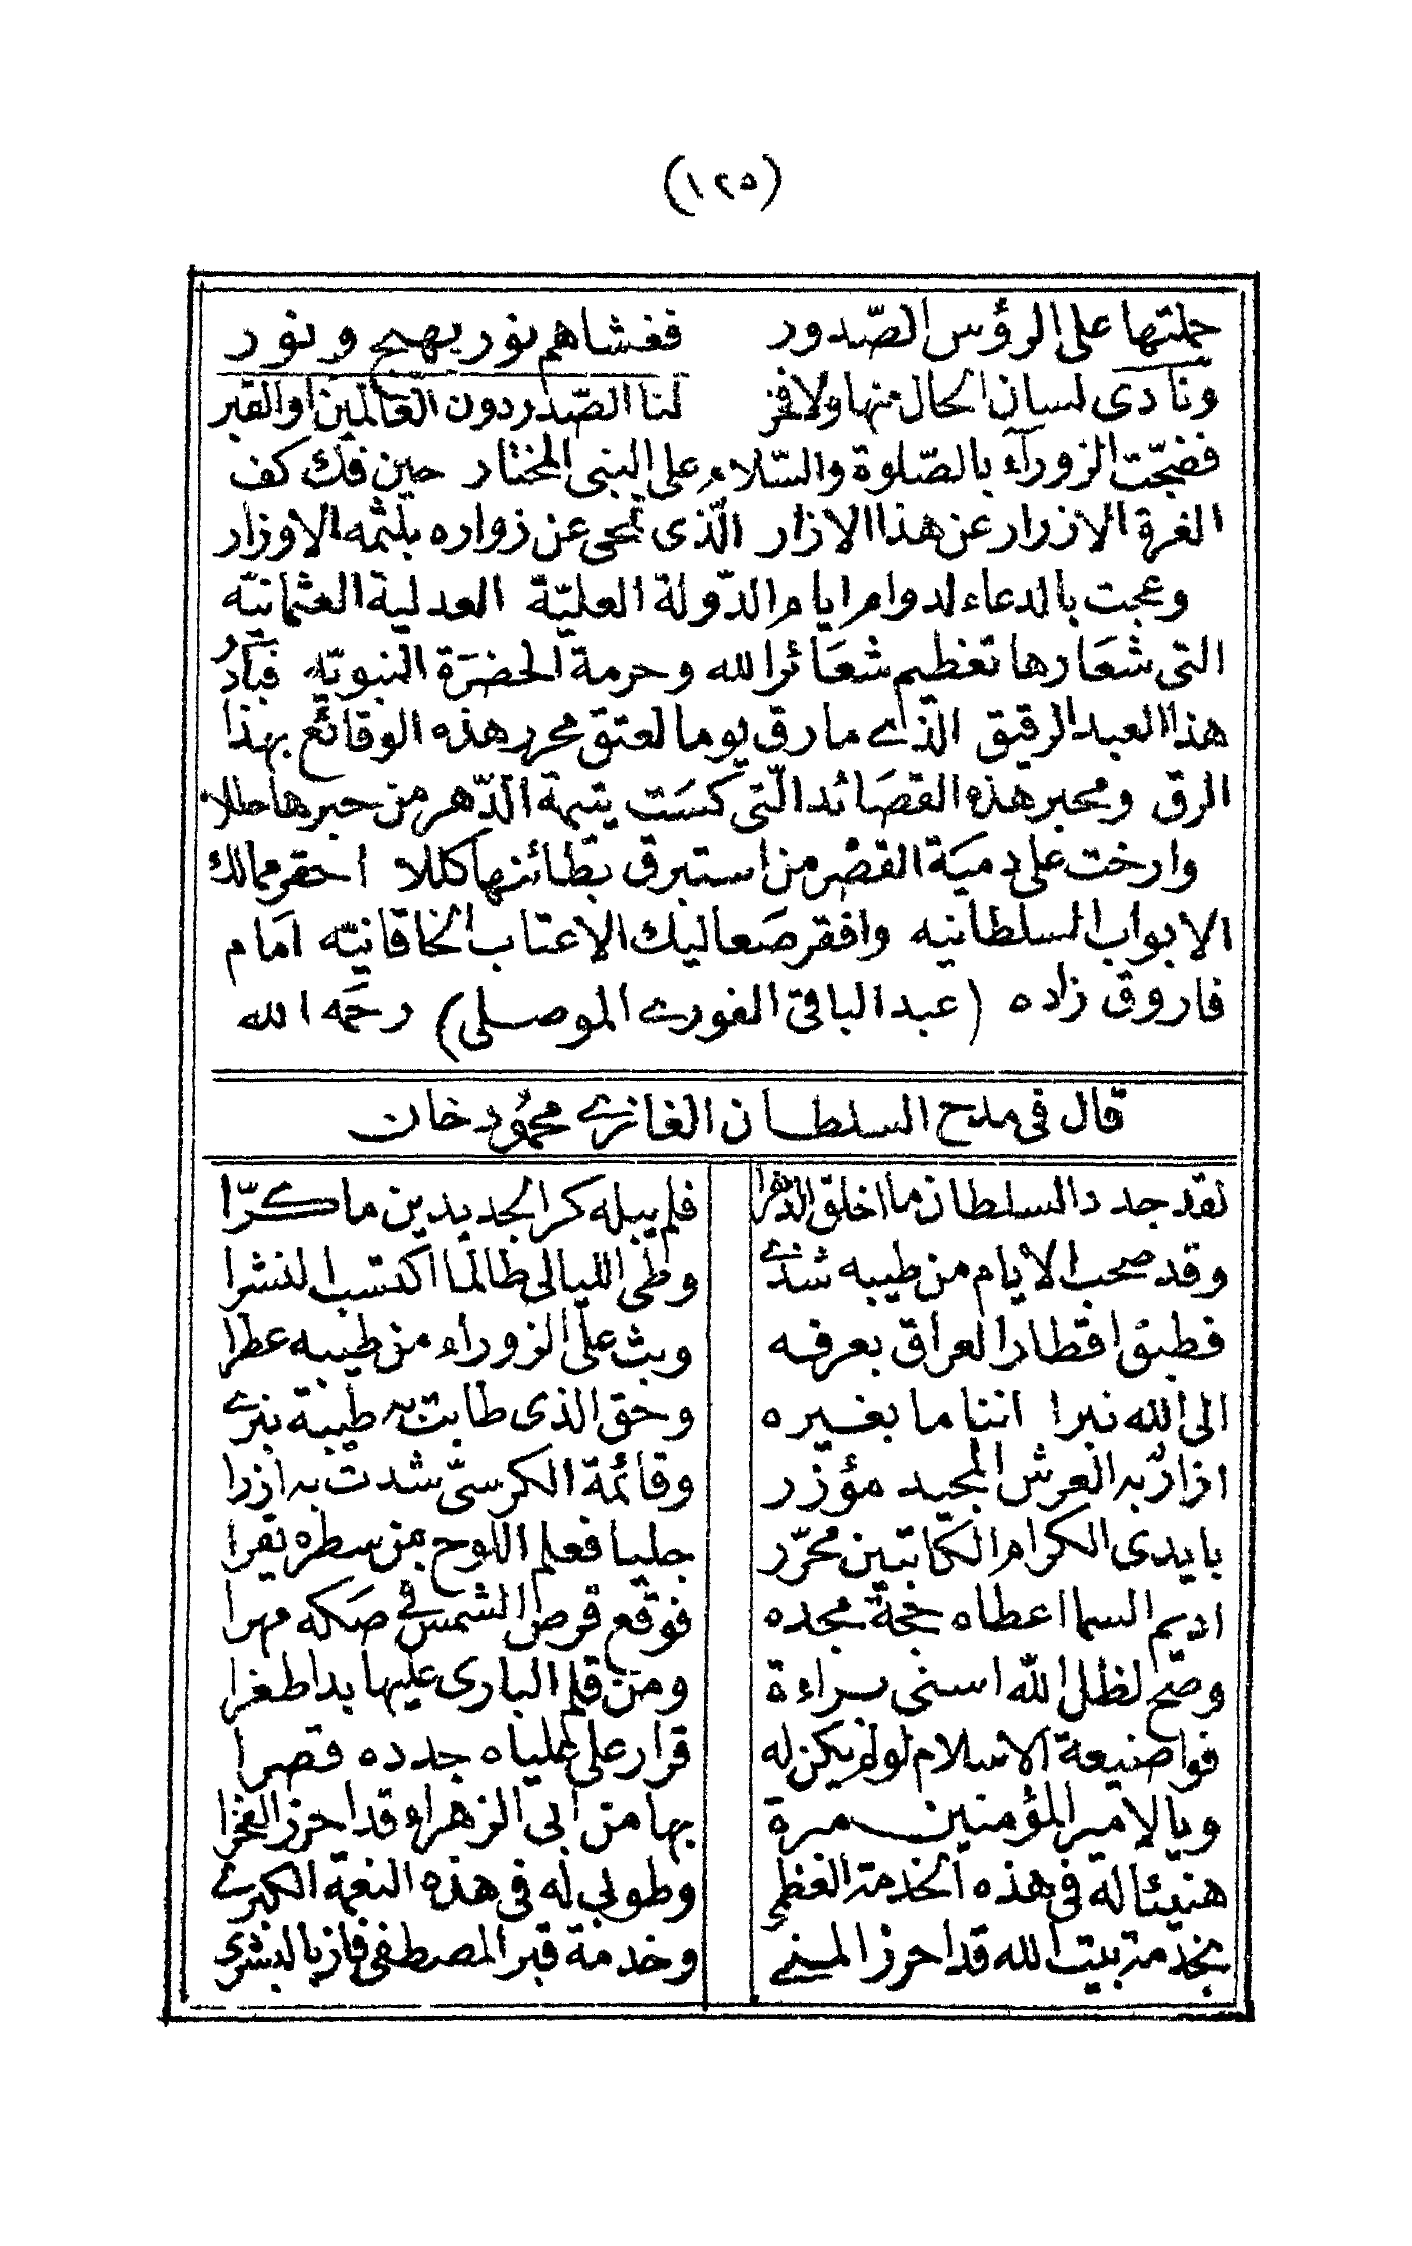 (١٢٥)
حملتها على الرؤس الصّدور فغشاهم نور يهيج ونور
ونادى لسان الحال منها ولا فخر لنا الصّدر دون العالمين او القبر
ففجّت الزورآء بالصّلوة والسّلام على النبى المختار حين فك كف
الغرة الازرار عن هذا الازار الّذى تمحى عن زواره بلثمه الاوزار
وعجت بالدعاء لدوام ايام الدّولة العليّة العدلية العثمانيّه
التى شعَارها تعظيم شعَائر الله وحرمة الحضرَة النبويّه فبادرُ
هذا العبد الرقيق الّذى ما رق يوما لعتق محرر هذه الوقائع بهذا
الرق ومحبر هذه القصَائد الّتى كسَت يتيمة الدّهر من حبرها حللا
وارخت على دميَة القصْر من استبرق بطائنها كللا احقر ممالك
الابواب السلطانيه وافقر صَعاليك الاعتاب الخاقانيّه امَام
فاروق زاده (عبد الباقى الفورى الموصلى) رحمَه الله
قال فى مدح السلطان الغازى محمُود خان
لقد جدد السلطان ما اخلق الدهرا فلم يبله كر الجديدين ما كرّا
وقد صحب الايام من طيبه شذى وطى الليالى طالما اكتسب النشرا
فطبق اقطار العراق بعرفه وبث على الزوراء من طيبه عطرا
الى الله نبرا اننا ما بغيره وحق الذى طابت به طيبة نبرى
ازارٌ به العرش المجيد مؤزر وقائمة الكرسىّ شدت به ازرا
بايدى الكرام الكاتبين محرّر جليا فعلم اللوح من سطره يقرا
اديم السما اعطاه حجة مجده فوقع قرص الشمس فى صَكه مهرا
وصح لظل الله اسنى براءة ومن قلم البارى عليها بدا طغرا
فوا ضيعة الاسلام لو لم يكن له قرار على علياه جدده قصرا
ويا لامير المؤمنين مبرة بها من ابى الزهراء قد احرز الفخرا
هنيئا له فى هذه الخدمة العظمى وطوبى له فى هذه النعمة الكبرى
بخدمة بيت الله قد احرز المنى وخدمة قبر المصطفى فاز بالبشرى